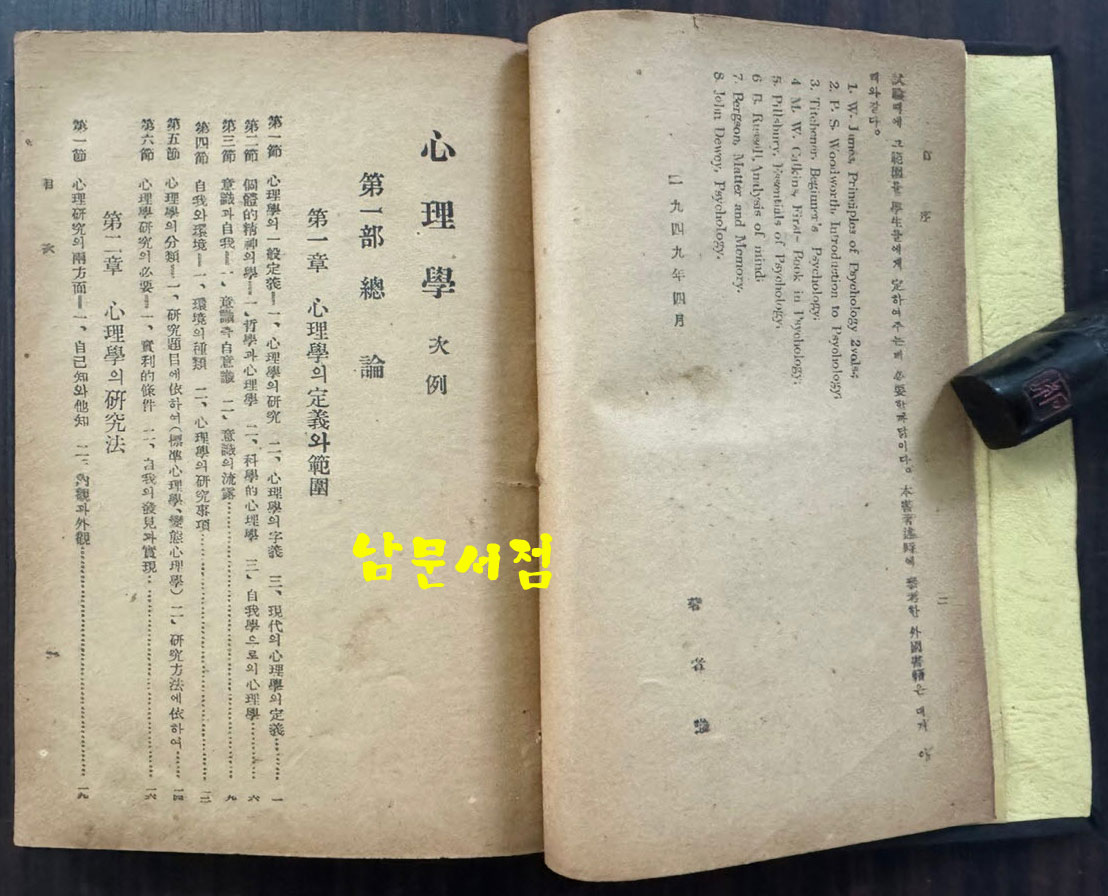 自序
二
次論的에 그 範圍를 學生들에게 定하여 주는데 必要한 까닭이다。 本書著述時에 參考한 外國書籍은 대개 아래와 같다。
1. W. James, Principles of Psychology 2vals;
2. P. S. Woodworth, Introduction to Psychology;
3. Titchener, Beginner's Psychology;
4 M. W. Calkins, First-Book in Psychology;
5. Pillsbury, Essentials of Psychology;
6 B. Russell, Analysis of mind;
7. Bergson, Matter and Memory,
8. John Dewey, Psychology,
一九四九年四月
著者識
心理學 次例
第一部 總論
第一章 心理學의 定義와 範圍
第一節 心理學의 一般定義=一、心理學의 研究 二、心理學의 字義 三、現代의 心理學의 定義……一
第二節 個體的精神의 學=一、哲學과 心理學 二、科學的 心理學 三、自我學으로의 心理學……六
第三節 意識과 自我=一、意識즉自意識 二、意識의 流露……九
第四節 自我와 環境=一、環境의 種類 二、心理學의 研究事項……一二
第五節 心理學의 分類=一、研究題目에 依하여(標準心理學、變態心理學) 二、研究方法에 依하여……一四
第六節 心理學研究의 必要=一、實利的條件 二、自我의 發見과 實現……一六
第二章 心理學의 研究法
第一節 心理研究의 兩方面=一、自己知와 他知 二、內觀과 外觀……一九
目次
남문서점